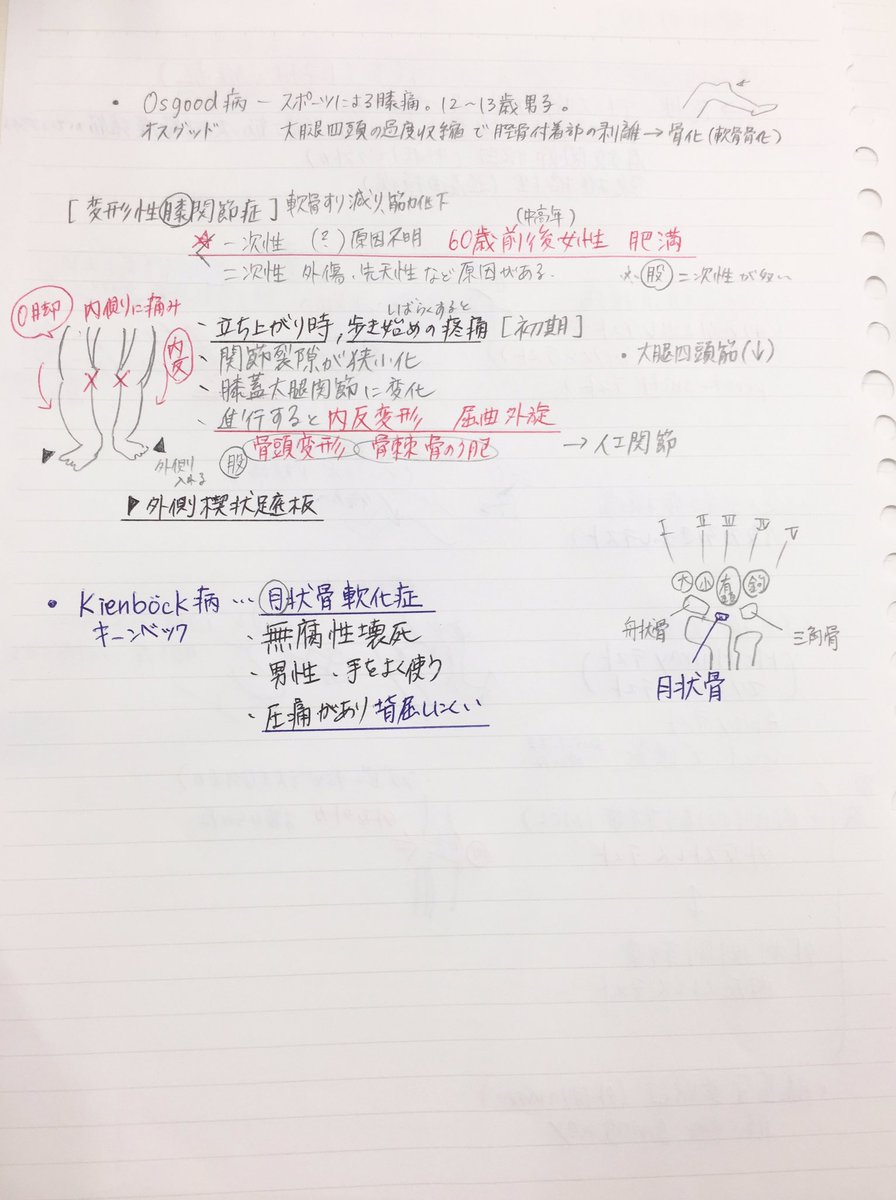 ・Osgood病 ― スポーツによる膝痛。12～13歳男子。
オスグッド 大腿四頭の過度収縮で脛骨付着部の剥離→骨化(軟骨骨化)
[変形性膝関節症] 軟骨すり減り、筋力低下
(中高年)
☆一次性 (♀) 原因不明 60歳前後女性 肥満
二次性 外傷、先天性など原因がある。 ※股 二次性が多い
O脚 内側に痛み
内反
外側入れる
しばらくすると
・立ち上がり時、歩き始めの疼痛[初期]
・関節裂隙が狭小化 ・大腿四頭筋(↓)
・膝蓋大腿関節に変化
・進行すると内反変形 屈曲外旋
股 骨頭変形 骨棘 骨のう胞 → 人工関節
▶外側楔状足底板
・Kienböck病 … 月状骨軟化症
キーンベック
・無腐性壊死
・男性、手をよく使う
・圧痛があり背屈しにくい
I II III IV V
大 小 有頭 鈎
舟状骨 三角骨
月状骨